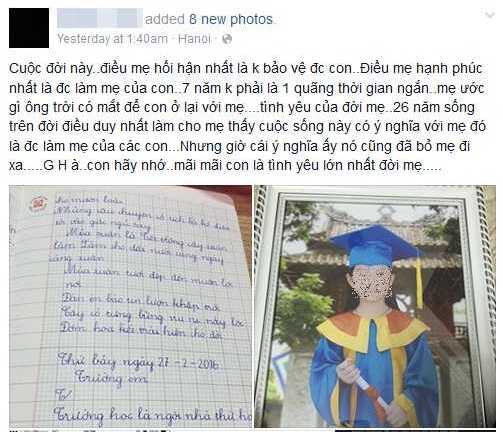 added 8 new photos.
Yesterday at 1:40am · Hanoi ·
Cuộc đời này..điều mẹ hối hận nhất là k bảo vệ đc con..Điều mẹ hạnh phúc
nhất là đc làm mẹ của con...7 năm k phải là 1 quãng thời gian ngắn..mẹ ước
gì ông trời có mắt để con ở lại với mẹ....tình yêu của đời mẹ..26 năm sống
trên đời điều duy nhất làm cho mẹ thấy cuộc sống này có ý nghĩa với mẹ đó
là đc làm mẹ của các con...Nhưng giờ cái ý nghĩa ấy nó cũng đã bỏ mẹ đi
xa.....G H à..con hãy nhớ..mãi mãi con là tình yêu lớn nhất đời mẹ.....
Mùa xuân tươi đẹp đến muôn lối
nơi
Thứ bảy ngày 27-2-2016
Trường em
Trường học là ngôi nhà thứ ha